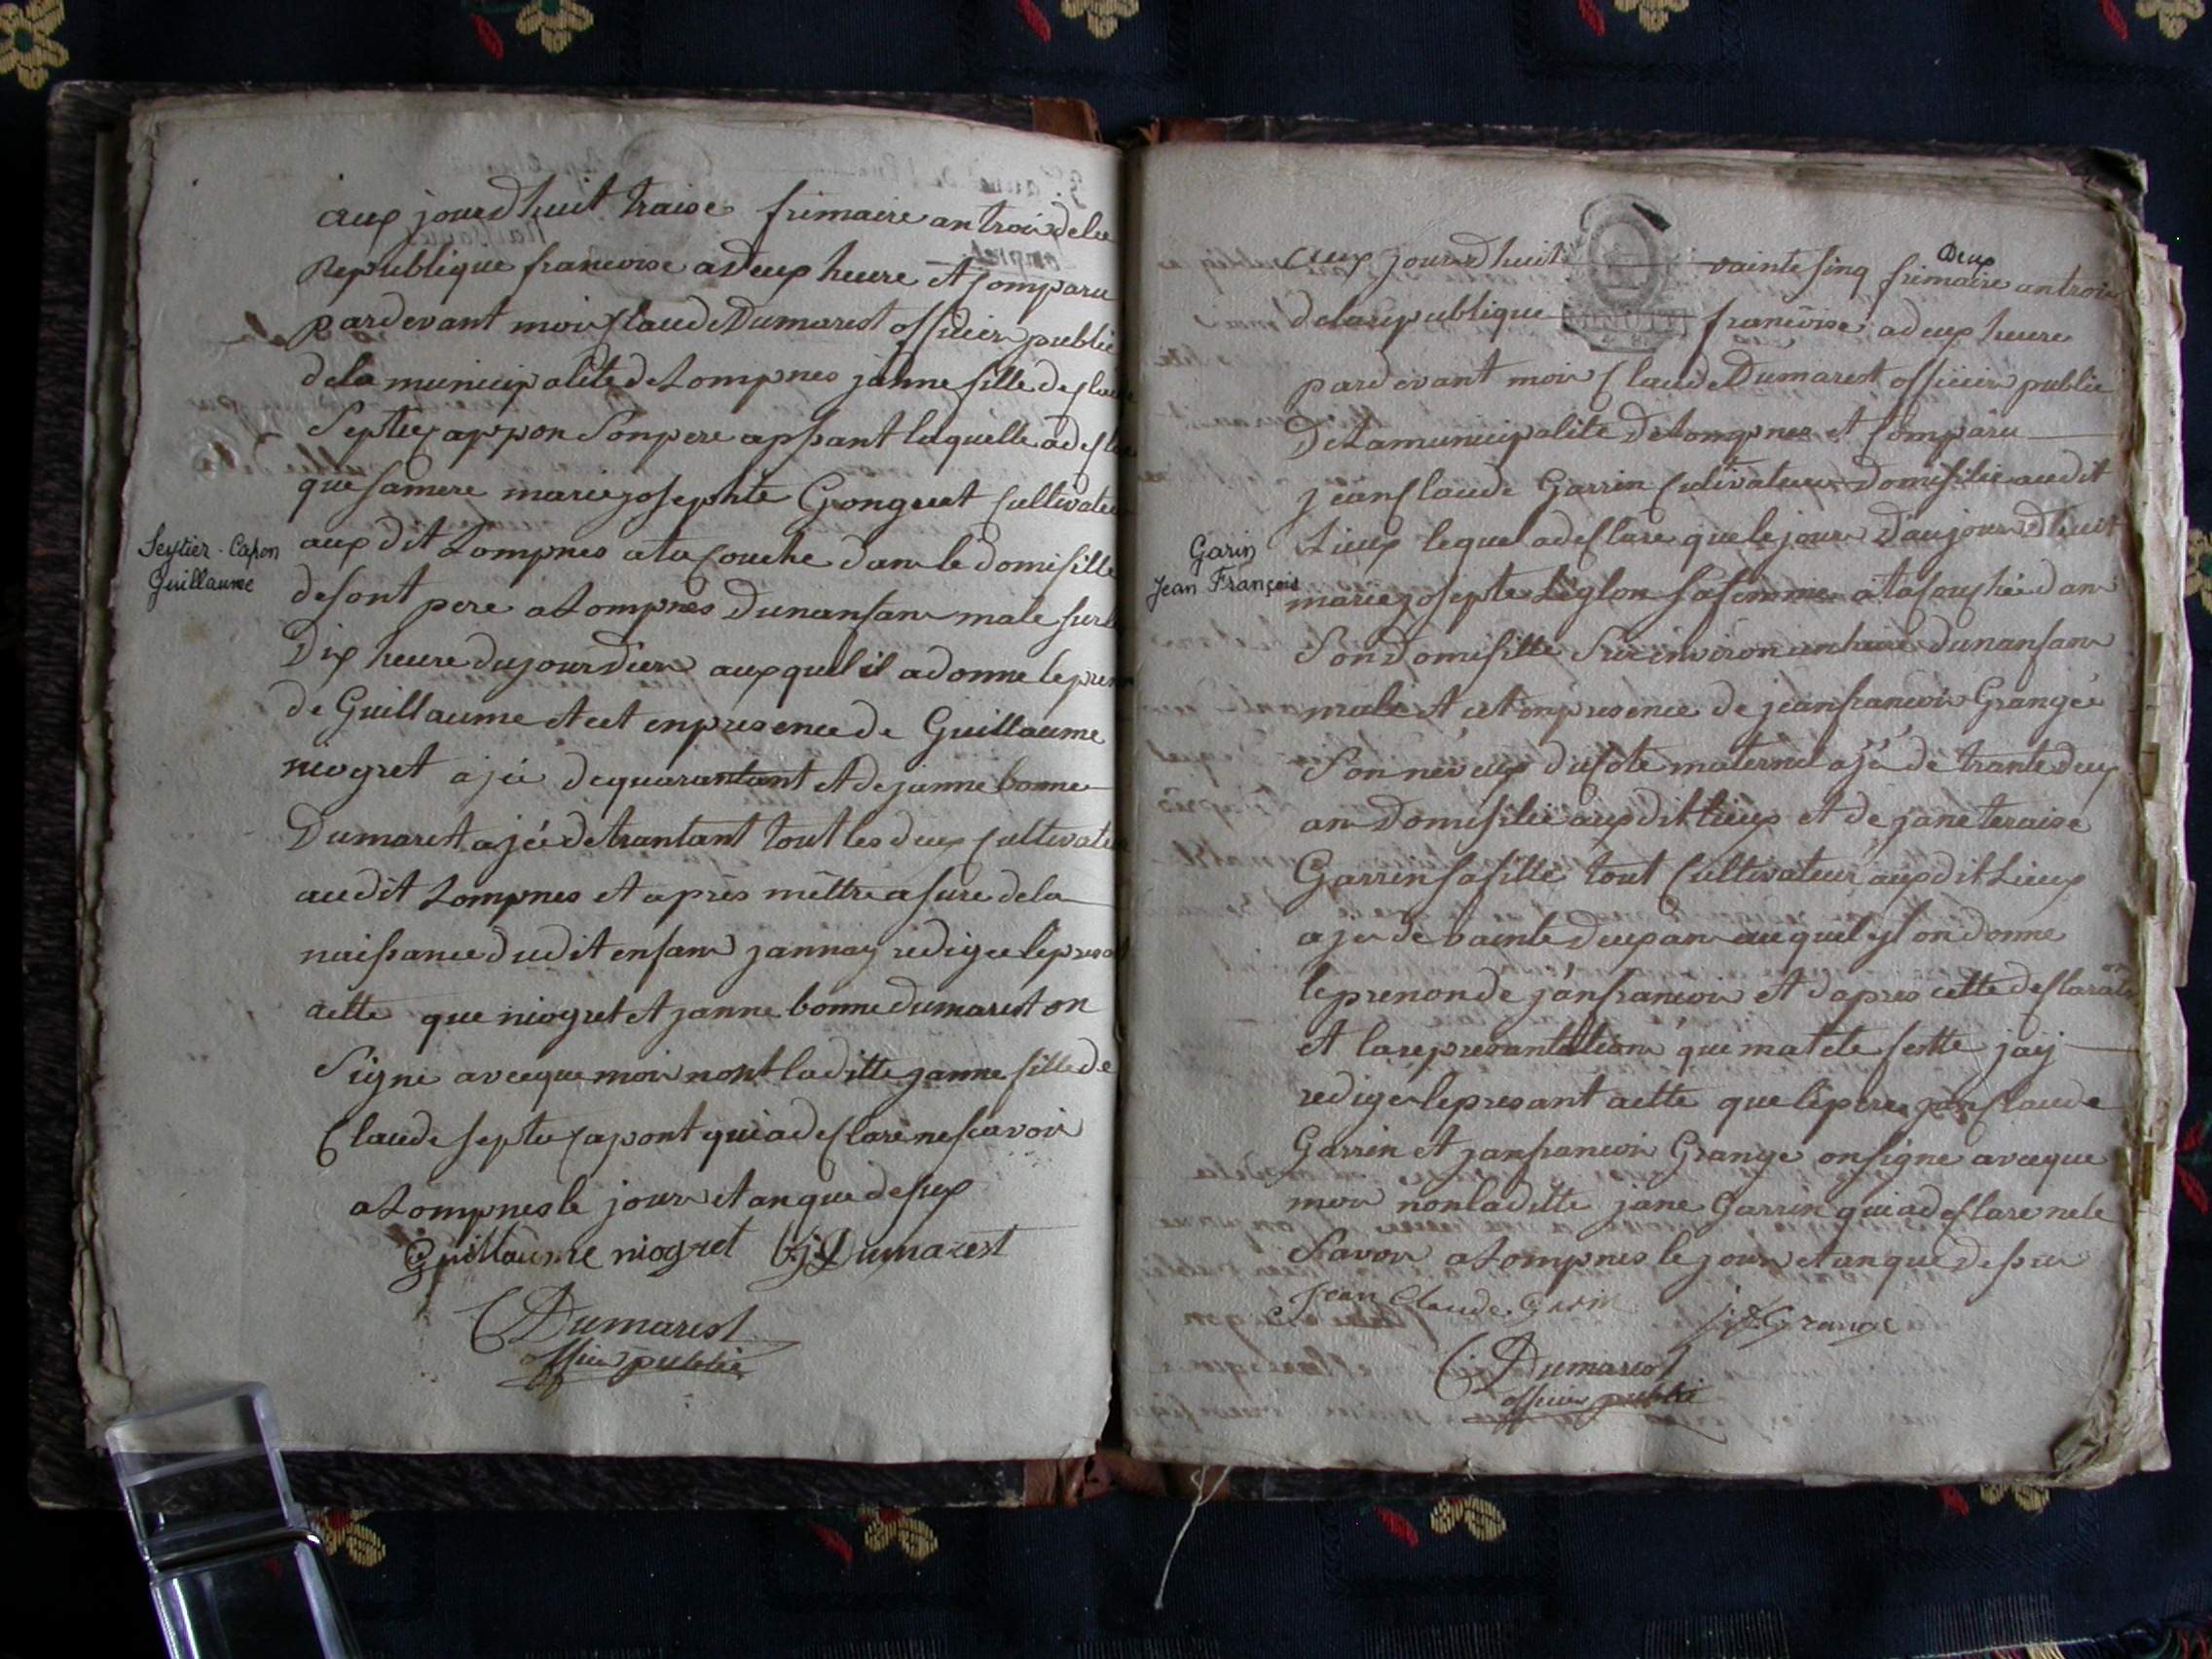 aux jourdhuit traise frimaire an troix dela
Republique francoise a deux heure et Comparu
pardevant moix Claude Dumarest officier public
dela municipalite de Lompnes janne fille de Claude
Septier appon Son pere apsant laquelle a desclare
que sa mere marie josephte Gonguet Cultivateur
Seytier - Capon
Guillaume
aux dit Lompnes a ta Couche dans le domisille
de sont pere a Lompnes Dun ansant male sur les
Dix heure du jour dier aux quel il a donne le prenon
de Guillaume et cet en presence de Guillaume
niogret ajée de quarantant et de janne bonne
Dumarest ajée de trantant tout les deux Cultivateur
audit Lompnes et après mêttre asure dela
naissance dudit enfant jannay redigee le presant
actte que niogret et janne bonne dumarest on
Signe avecque moix nont laditte janne fille de
Claude septie Capont qui a desclare ne scavoir
a Lompnes le jour et an que desux
Guillaume niogret bj Dumarest
C Dumarest
officier public
aux jourdhuit vainte sinq frimaire an troix
Deux
dela republique francoise a deux heure
pardevant moix Claude Dumarest officier public
De La municipalite De Lompnes et Comparu
jean Claude Garrin Cultivateur Domisilie audit
Lieux lequel a desclare que le jour D'aujourdhuit
Garin
Jean François
marie josepte Léglon sa femme a ta Couchée dans
Son Domisille Sur environ un heure dun ansant
male et cet en presence de jean francoix Grangée
Son neveux du Cote maternel ajé de trante deux
an Domisilié aux dit Lieux et de jane teraise
Garrin sa fille tout Cultivateur aux dit Lieux
ajee de vainte deux an auquel yl on donne
le prenon de jan francoix et d'apres cette desclaration
et la represantation que mat ete fette jay
rediger le presant actte que le pere jan Claude
Garrin et jan francoix Grange on signe avecque
moix non laditte jane Garrin qui a desclare ne le
Savoir a Lompnes le jour et an que dessus
jean Claude Garin j f Grange
C Dumarest
officier public